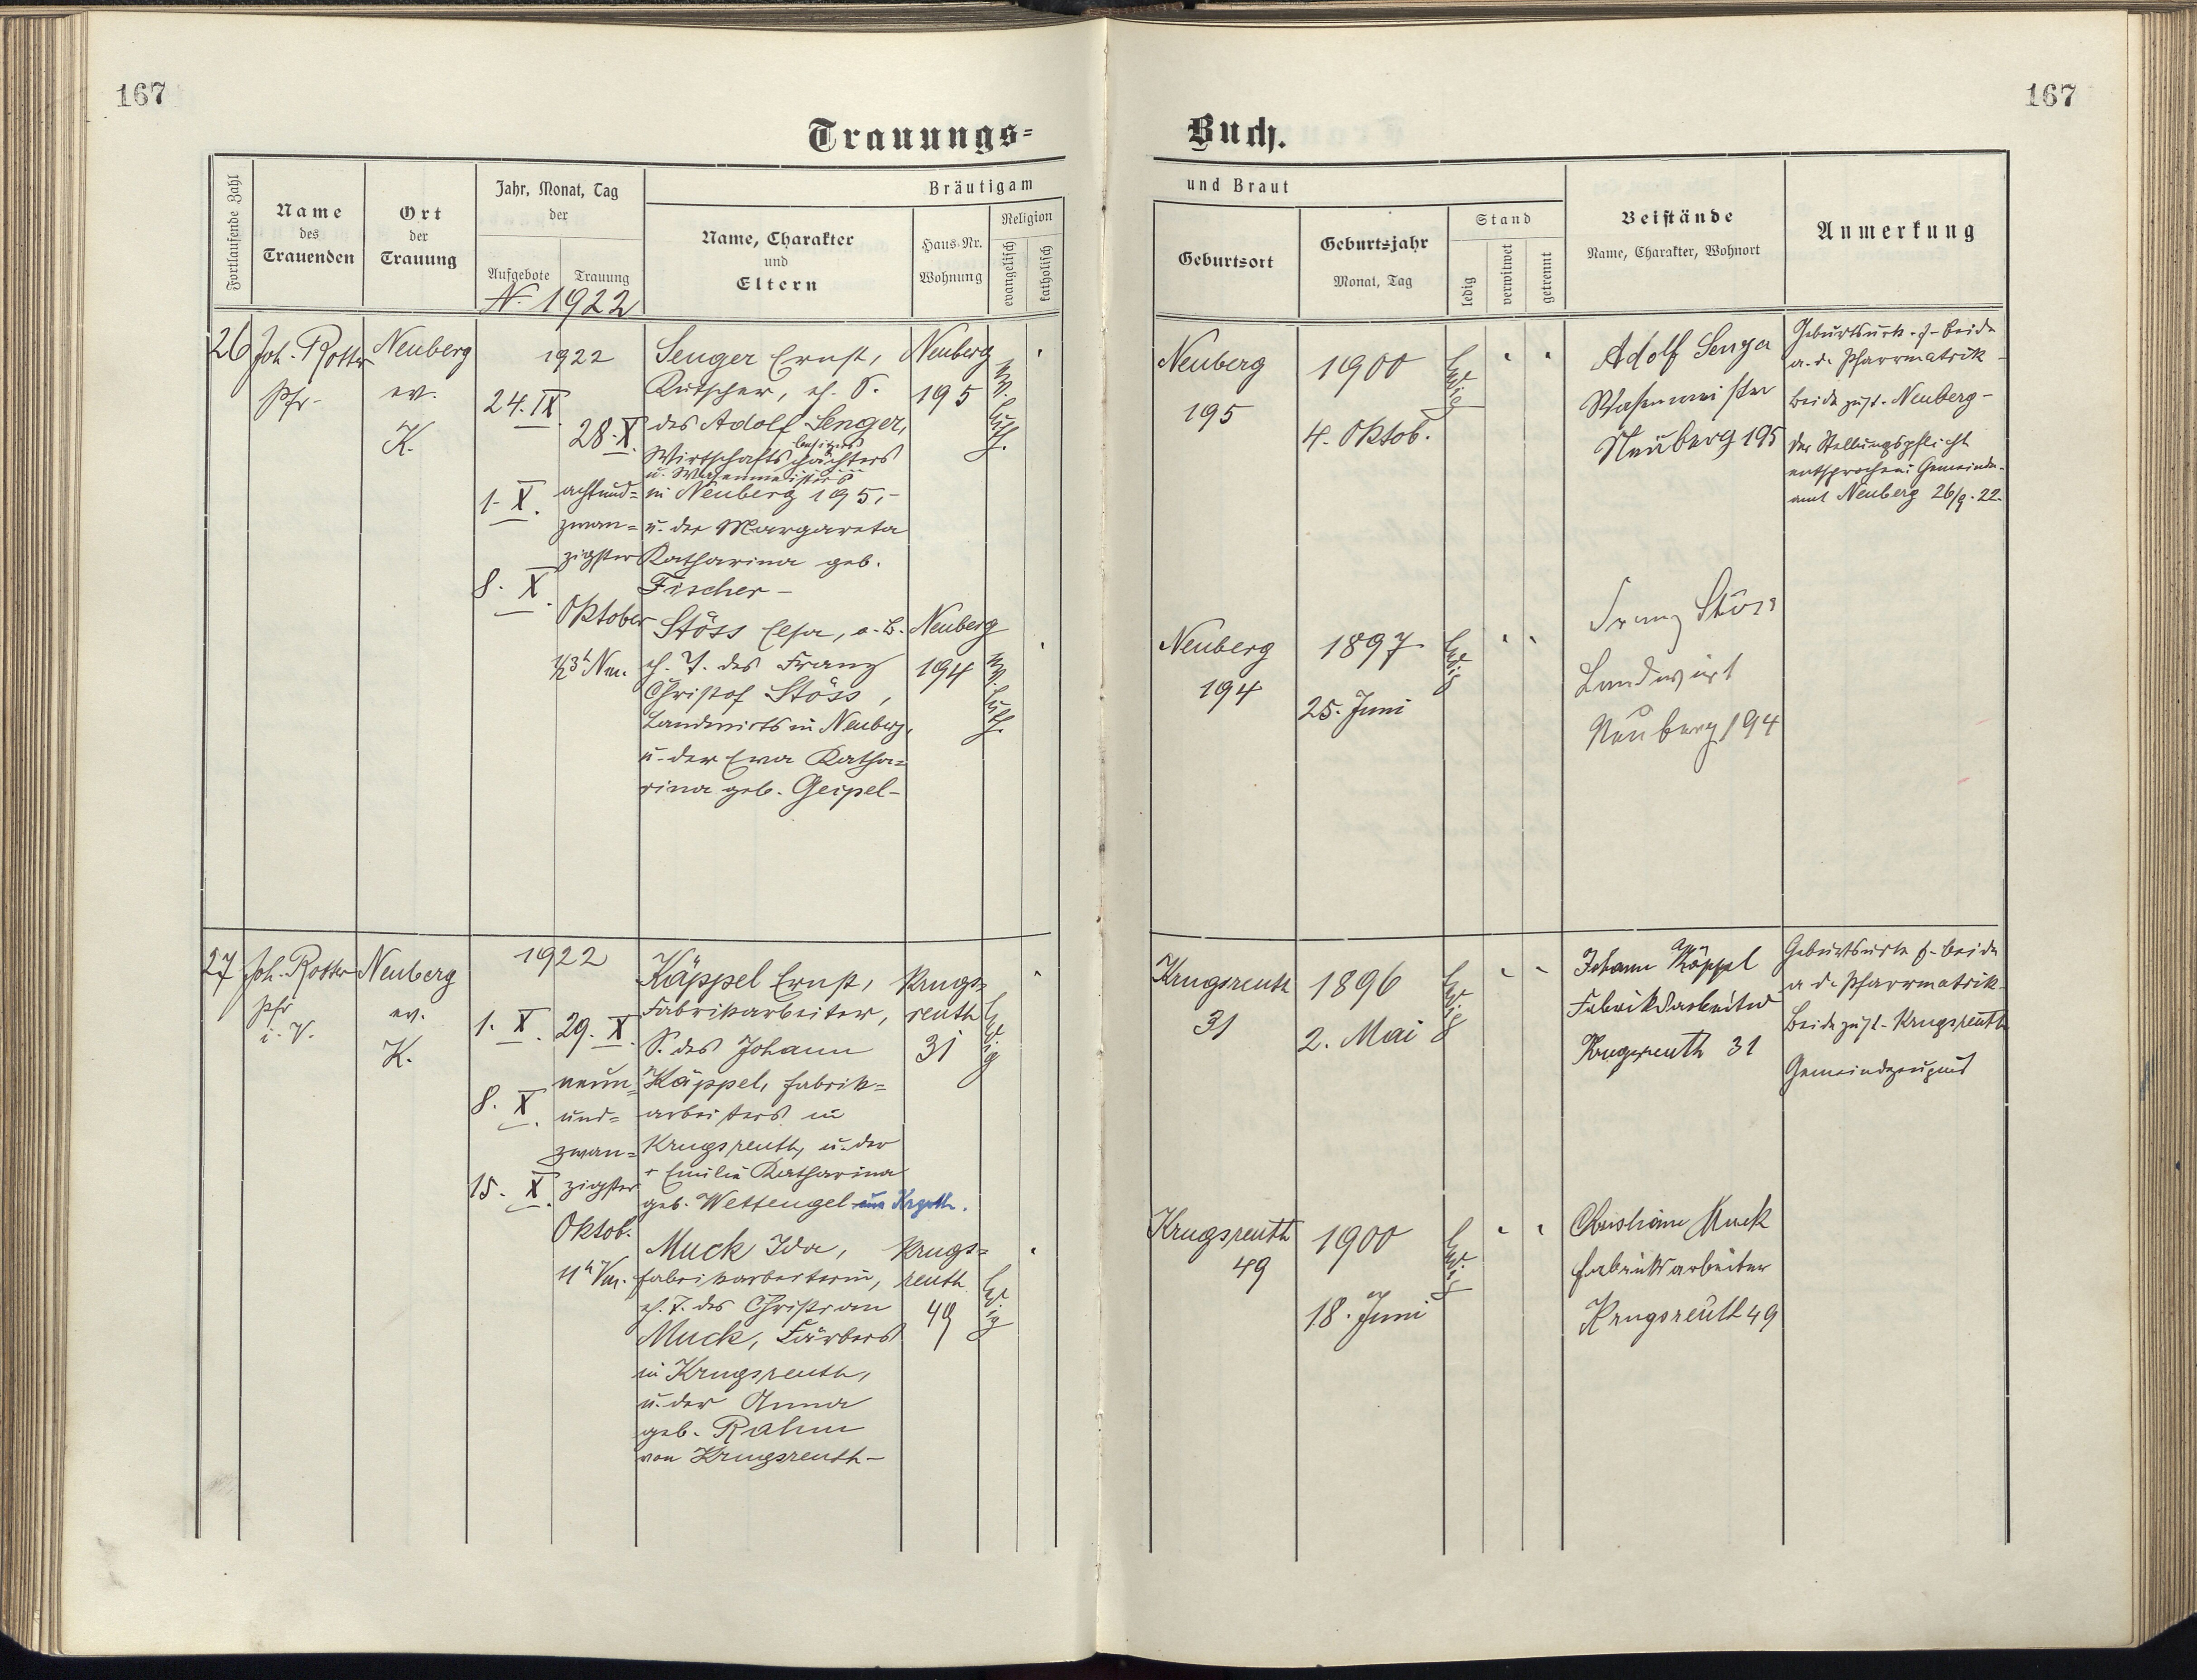 167
167
Trauungs-
Buch.
Fortlaufende Zahl
Name
des
Trauenden
Ort
der
Trauung
Jahr, Monat, Tag
der
Aufgebote
Trauung
N. 1922
Bräutigam
Name, Charakter
und
Eltern
Haus-Nr.
Wohnung
Religion
evangelisch
katholisch
und Braut
Geburtsort
Geburtsjahr
Monat, Tag
Stand
ledig
verwitwet
getrennt
Beistände
Name, Charakter, Wohnort
Anmerkung
26
Joh. Rotter
Pfr.
Neuberg
ev.
K.
1922
24. IX.
1. X.
8. X.
28. X.
achtund-
zwan-
zigster
Oktober
½3h Nm.
Senger Ernst,
Kutscher, eh. S.
des Adolf Senger,
besitzers
Wirtschaftspächters
u. Wasenmeisters
in Neuberg 195,-
u. der Margareta
Katharina geb.
Fischer -
Neuberg
195
ev. luth.
Stöss Elsa, a. B.
eh. T. des Franz
Christof Stöss,
Landwirts in Neuberg,
u. der Eva Katha-
rina geb. Geipel-
Neuberg
194
ev. luth.
Neuberg
195
1900
4. Oktob.
ledig
Adolf Senger
Wasenmeister
Neuberg 195
Geburtsurk. f. beide
a. d. Pfarrmatrik -
beide zust. Neuberg -
der Stellungspflicht
entsprochen: Gemeinde-
amt Neuberg 26/9. 22.
Neuberg
194
1897
25. Juni
ledig
Franz Stöss
Landwirt
Neuberg 194
27
Joh. Rotter
Pfr
i. V.
Neuberg
ev.
K.
1922
1. X.
8. X.
15. X.
29. X.
neun-
und-
zwan-
zigster
Oktob.
11h Vm.
Käppel Ernst,
Fabrikarbeiter,
S. des Johann
Käppel, Fabrik-
arbeiters in
Krugsreuth, u. der
+ Emilie Katharina
geb. Wettengel aus Krgrth.
Krugs-
reuth
31
ledig
Muck Ida,
Fabrikarbeiterin,
eh. T. des Christian
Muck, Färbers
in Krugsreuth,
u. der Anna
geb. Rahm
von Krugsreuth-
Krugs-
reuth
49
ledig
Krugsreuth
31
1896
2. Mai
ledig
Johann Käppel
Fabriksarbeiter
Krugsreuth 31
Geburtsurk f. beide
a d. Pfarrmatrik-
Beide zust. Krugsreuth
Gemeindezeugnis
Krugsreuth
49
1900
18. Juni
ledig
Christian Muck
Fabriksarbeiter
Krugsreuth 49